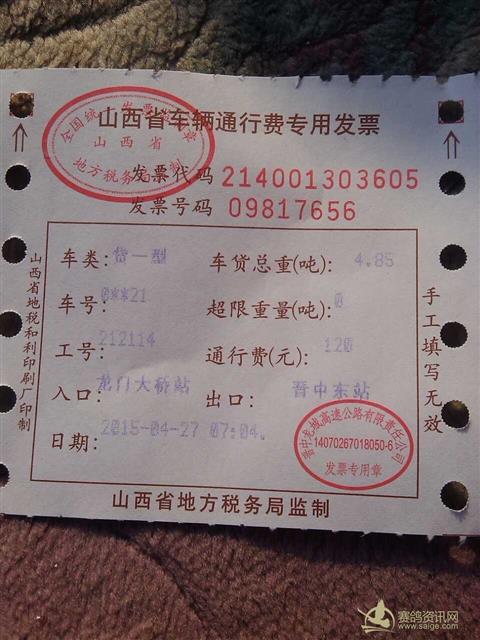 山西省车辆通行费专用发票
全国统一发票监制章
山西省
地方税务局监制
发票代码 214001303605
发票号码 09817656
车类: 货一型 车货总重(吨): 4.85
车号: 0**21 超限重量(吨): 0
工号: 212114 通行费(元): 120
入口: 龙门大桥站 出口: 晋中东站
日期: 2015-04-27 07:04.
晋中龙城高速公路有限责任公司
14070267018050-6
发票专用章
山西省地税和利印刷厂印制
手工填写无效
山西省地方税务局监制
赛鸽资讯网
www.saige.com